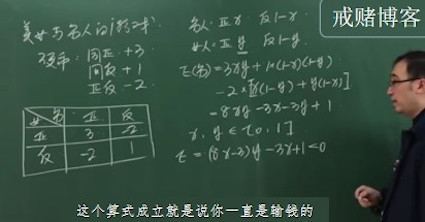 美女与名人的博弈
硬币: 同正 +3
同反 +1
正反 -2
女 名 正 反
正 3 -2
反 -2 1
名人: 正x 反1-x
女人: 正y 反1-y
E(名) = 3xy + 1×(1-x)(1-y)
-2×[x(1-y)+y(1-x)]
=8xy-3x-3y+1
x, y ∈ [0, 1]
E = (8x-3)y -3x+1<0
戒赌博客
这个算式成立就是说你一直是输钱的